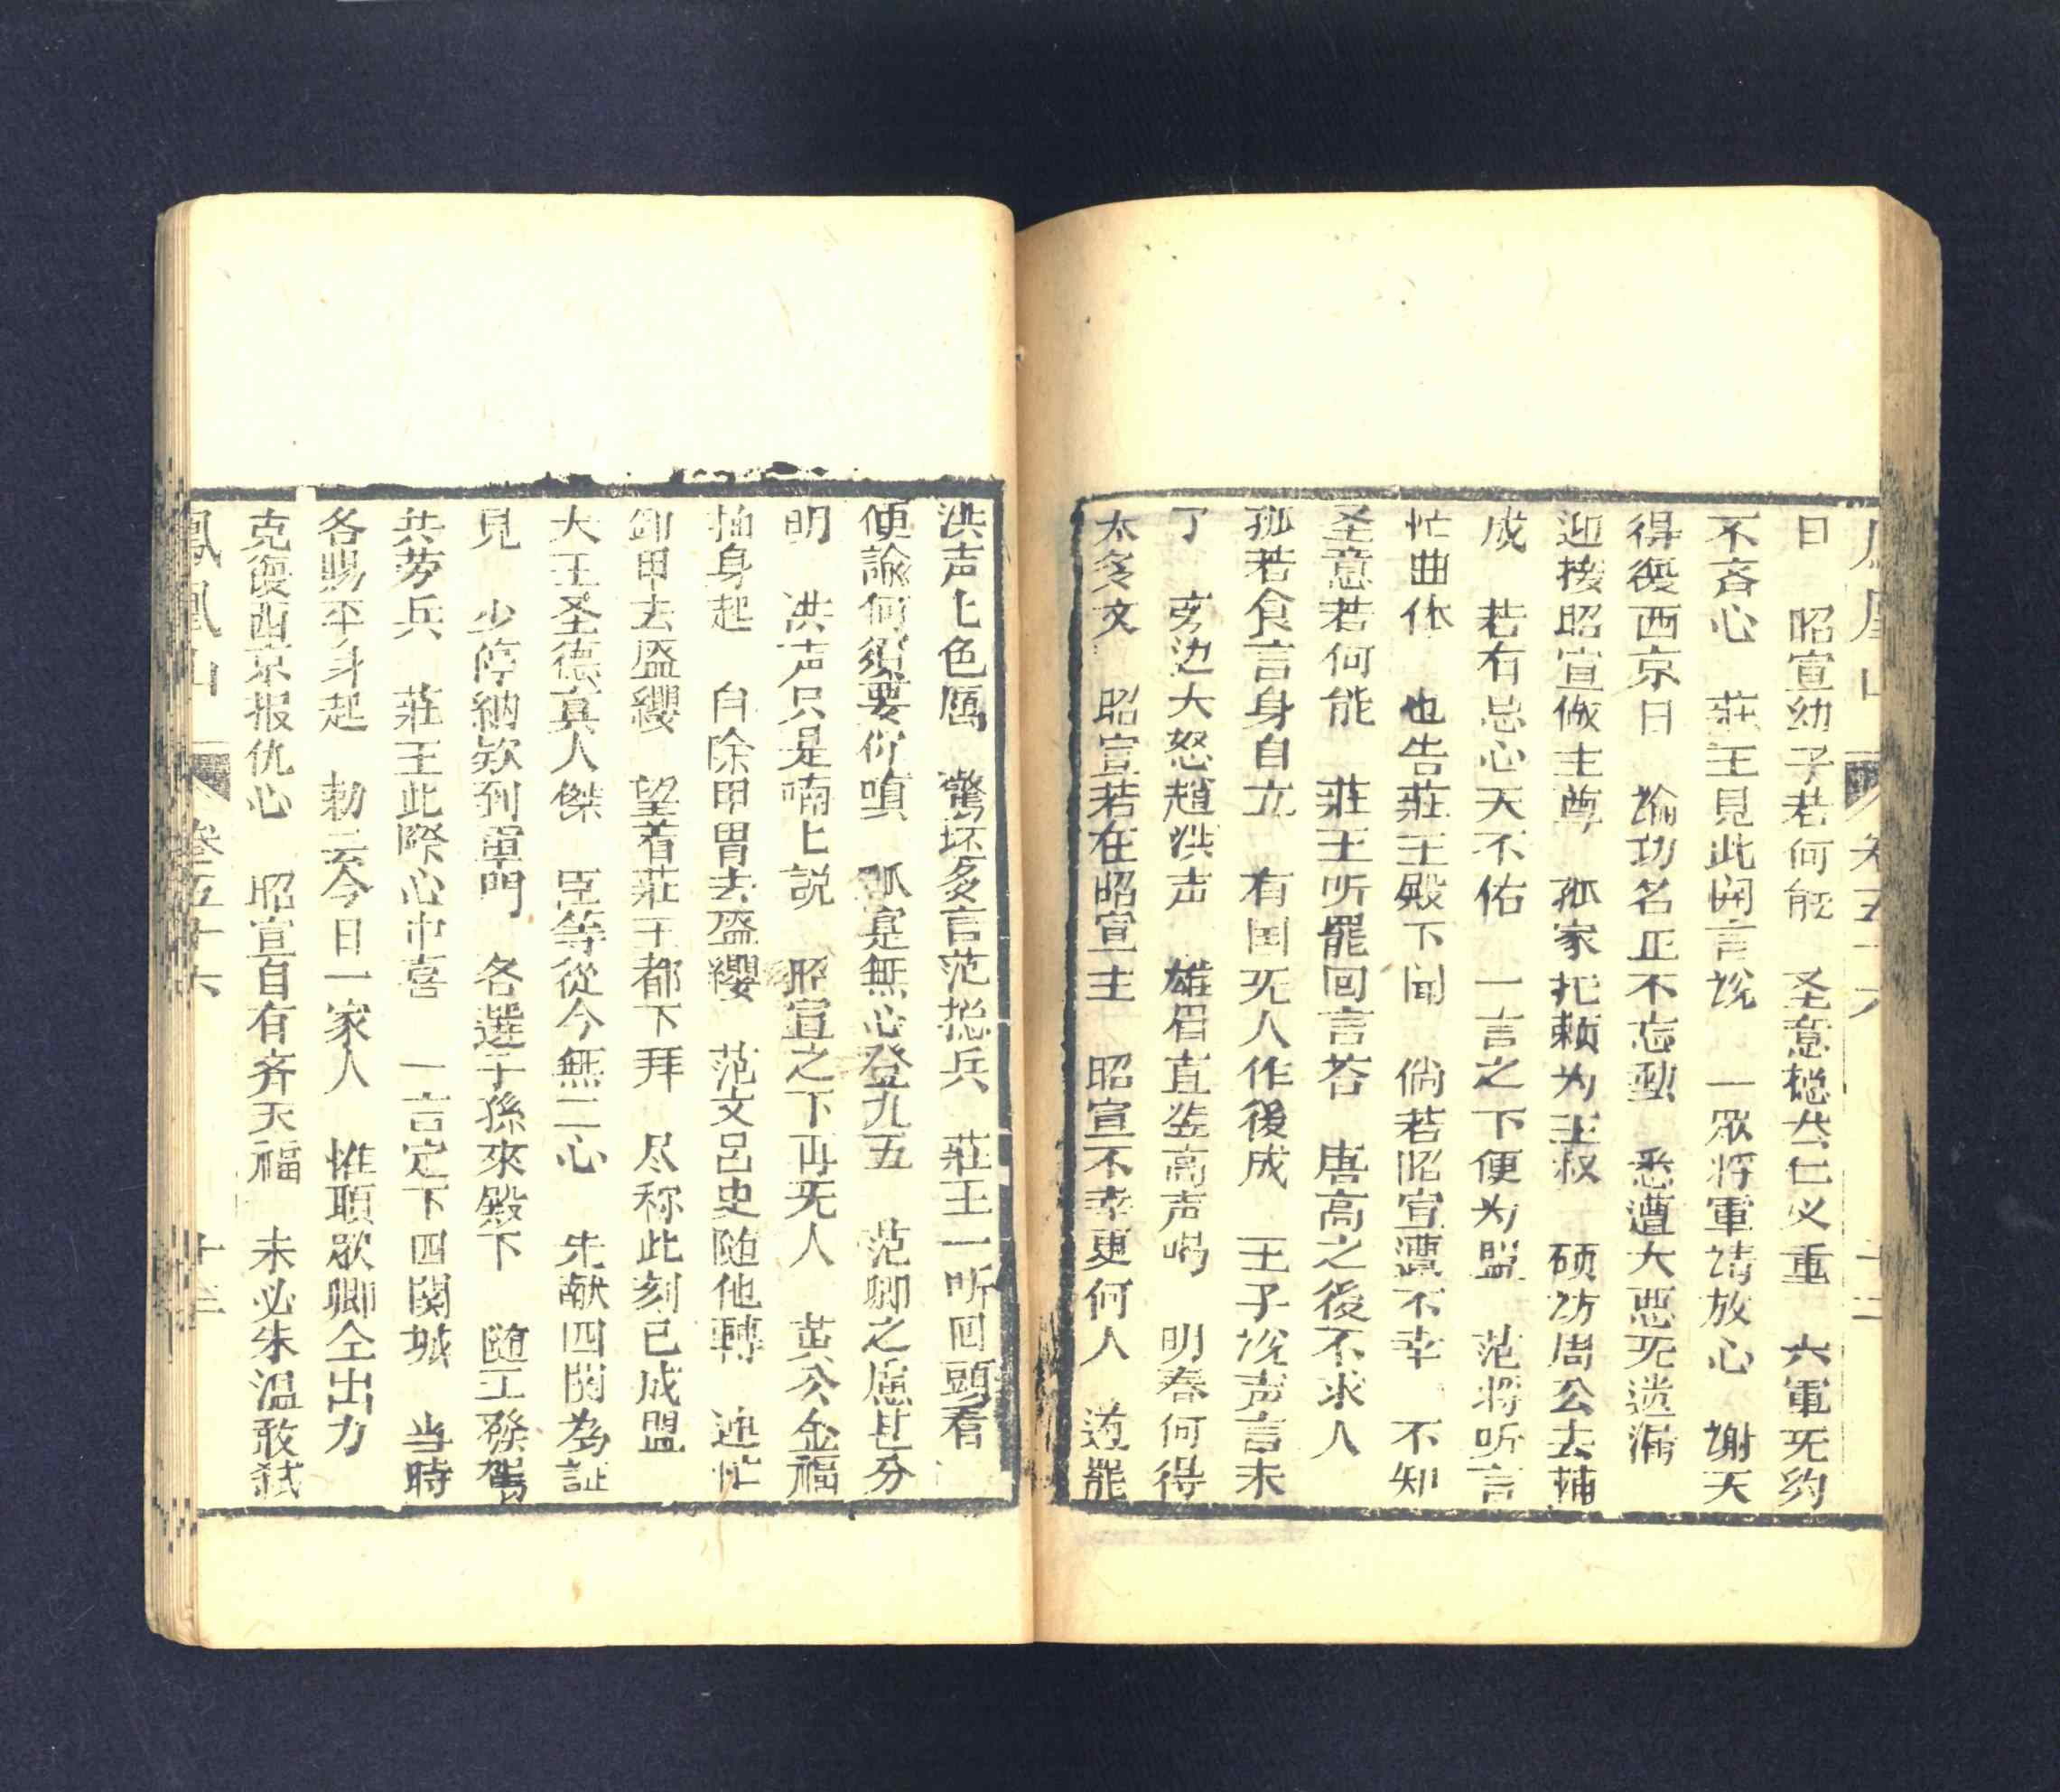 鳳凰山 卷五十六 十二
日　昭宣幼子若何能　圣意総然仁义重　六軍无约
不斉心　莊王見此開言說　一眾将軍請放心　謝天
得復西京日　論功名正不忘勲　悉遭大惡无遗漏
迎接昭宣做主尊　孤家把賴为王叔　碩访周公去輔
成　若有忌心天不佑　一言之下便为盟　范将听言
忙曲体　也告莊王殿下闻　倘若昭宣遭不幸　不知
圣意若何能　莊王听罷回言答　唐高之後不求人
孤若食言身自立　有国无人作後成　王子说声言未
了　旁边大怒趙洪声　雄眉直竖高声喝　明春何得
太多文　昭宣若在昭宣主　昭宣不幸更何人　道罷
洪声匕色厲　驚坏多言范捴兵　莊王一听回頭看
便諭何須要行嗔　孤寔無心登九五　范卿之慮甚分
明　洪声只是喃匕説　昭宣之下再无人　黄公金福
抽身起　自除甲胄去盔纓　范文呂史随他轉　連忙
卸甲去盔纓　望着莊王都下拜　尽称此刻已成盟
大王圣德真人傑　臣等從今無二心　先献四関為証
見　少停納欵到軍門　各選子孫來殿下　随王發駕
共劳兵　莊王此際心中喜　一言定下四関城　当時
各賜平身起　勅云今日一家人　惟願欲卿仝出力
克復西京报仇心　昭宣自有齐天福　未必朱温敢弑
鳳凰山 卷五十六 十三